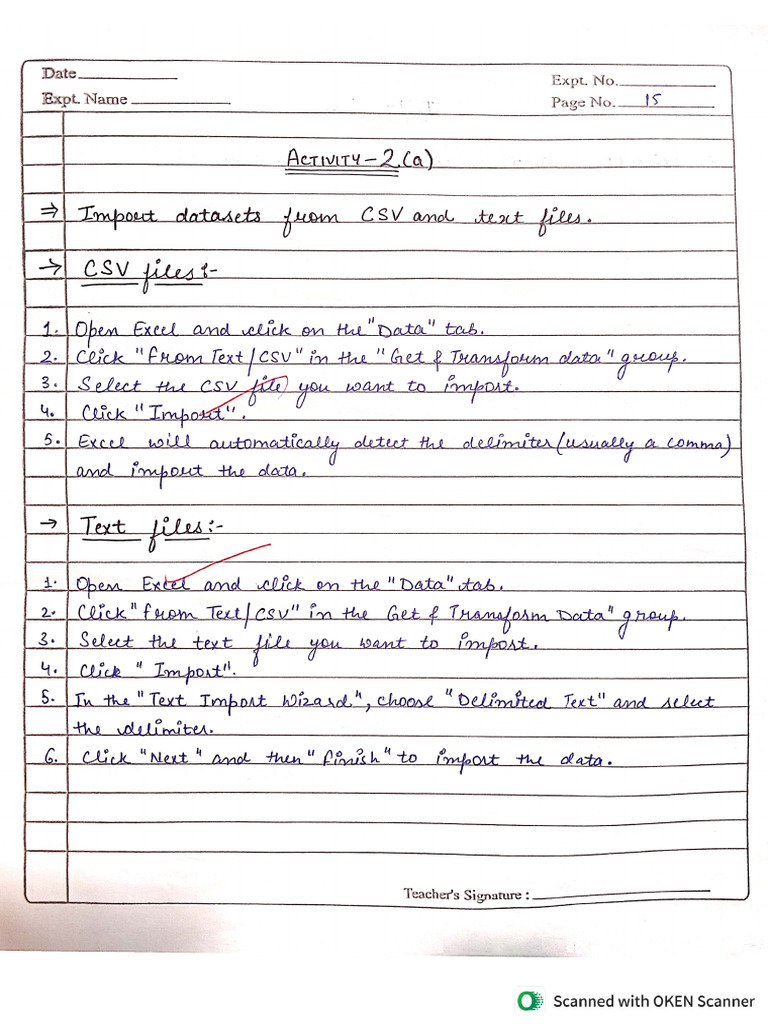 Date
Expt. No.
Expt. Name
Page No. 15
ACTIVITY-2.(a)
⇒ Import datasets from CSV and text files.
→ CSV files:-
1. Open Excel and click on the "Data" tab.
2. Click "From Text/CSV" in the "Get & Transform data" group.
3. Select the CSV file you want to import.
4. Click "Import".
5. Excel will automatically detect the delimiter (usually a comma)
and import the data.
→ Text files:-
1. Open Excel and click on the "Data" tab.
2. Click "From Text/CSV" in the Get & Transform Data" group.
3. Select the text file you want to import.
4. Click "Import".
5. In the "Text Import Wizard", choose "Delimited Text" and select
the delimiter.
6. Click "Next" and then "Finish" to import the data.
Teacher's Signature :
Scanned with OKEN Scanner